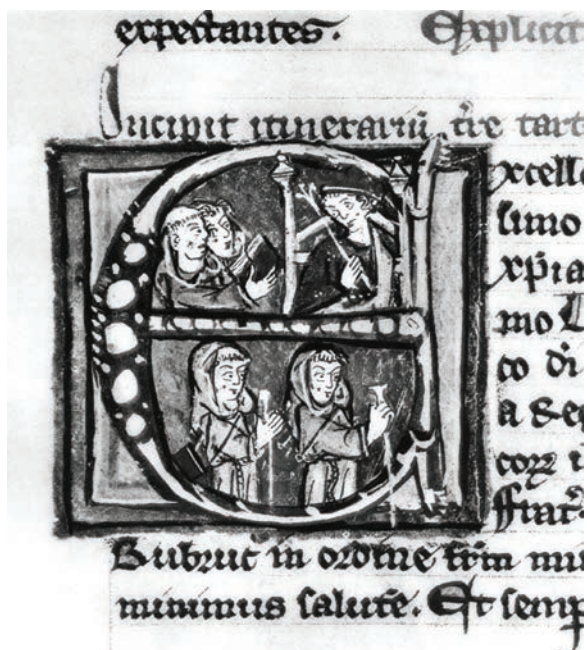 expectantes. Explicit
Incipit itinerariũ tr̃e tart
xcelle
simo
xp̃ia
mo L
co di
a Re
ffrat̃
Rubruc in ordine frm̃ mi
minimus salutẽ. Et semp